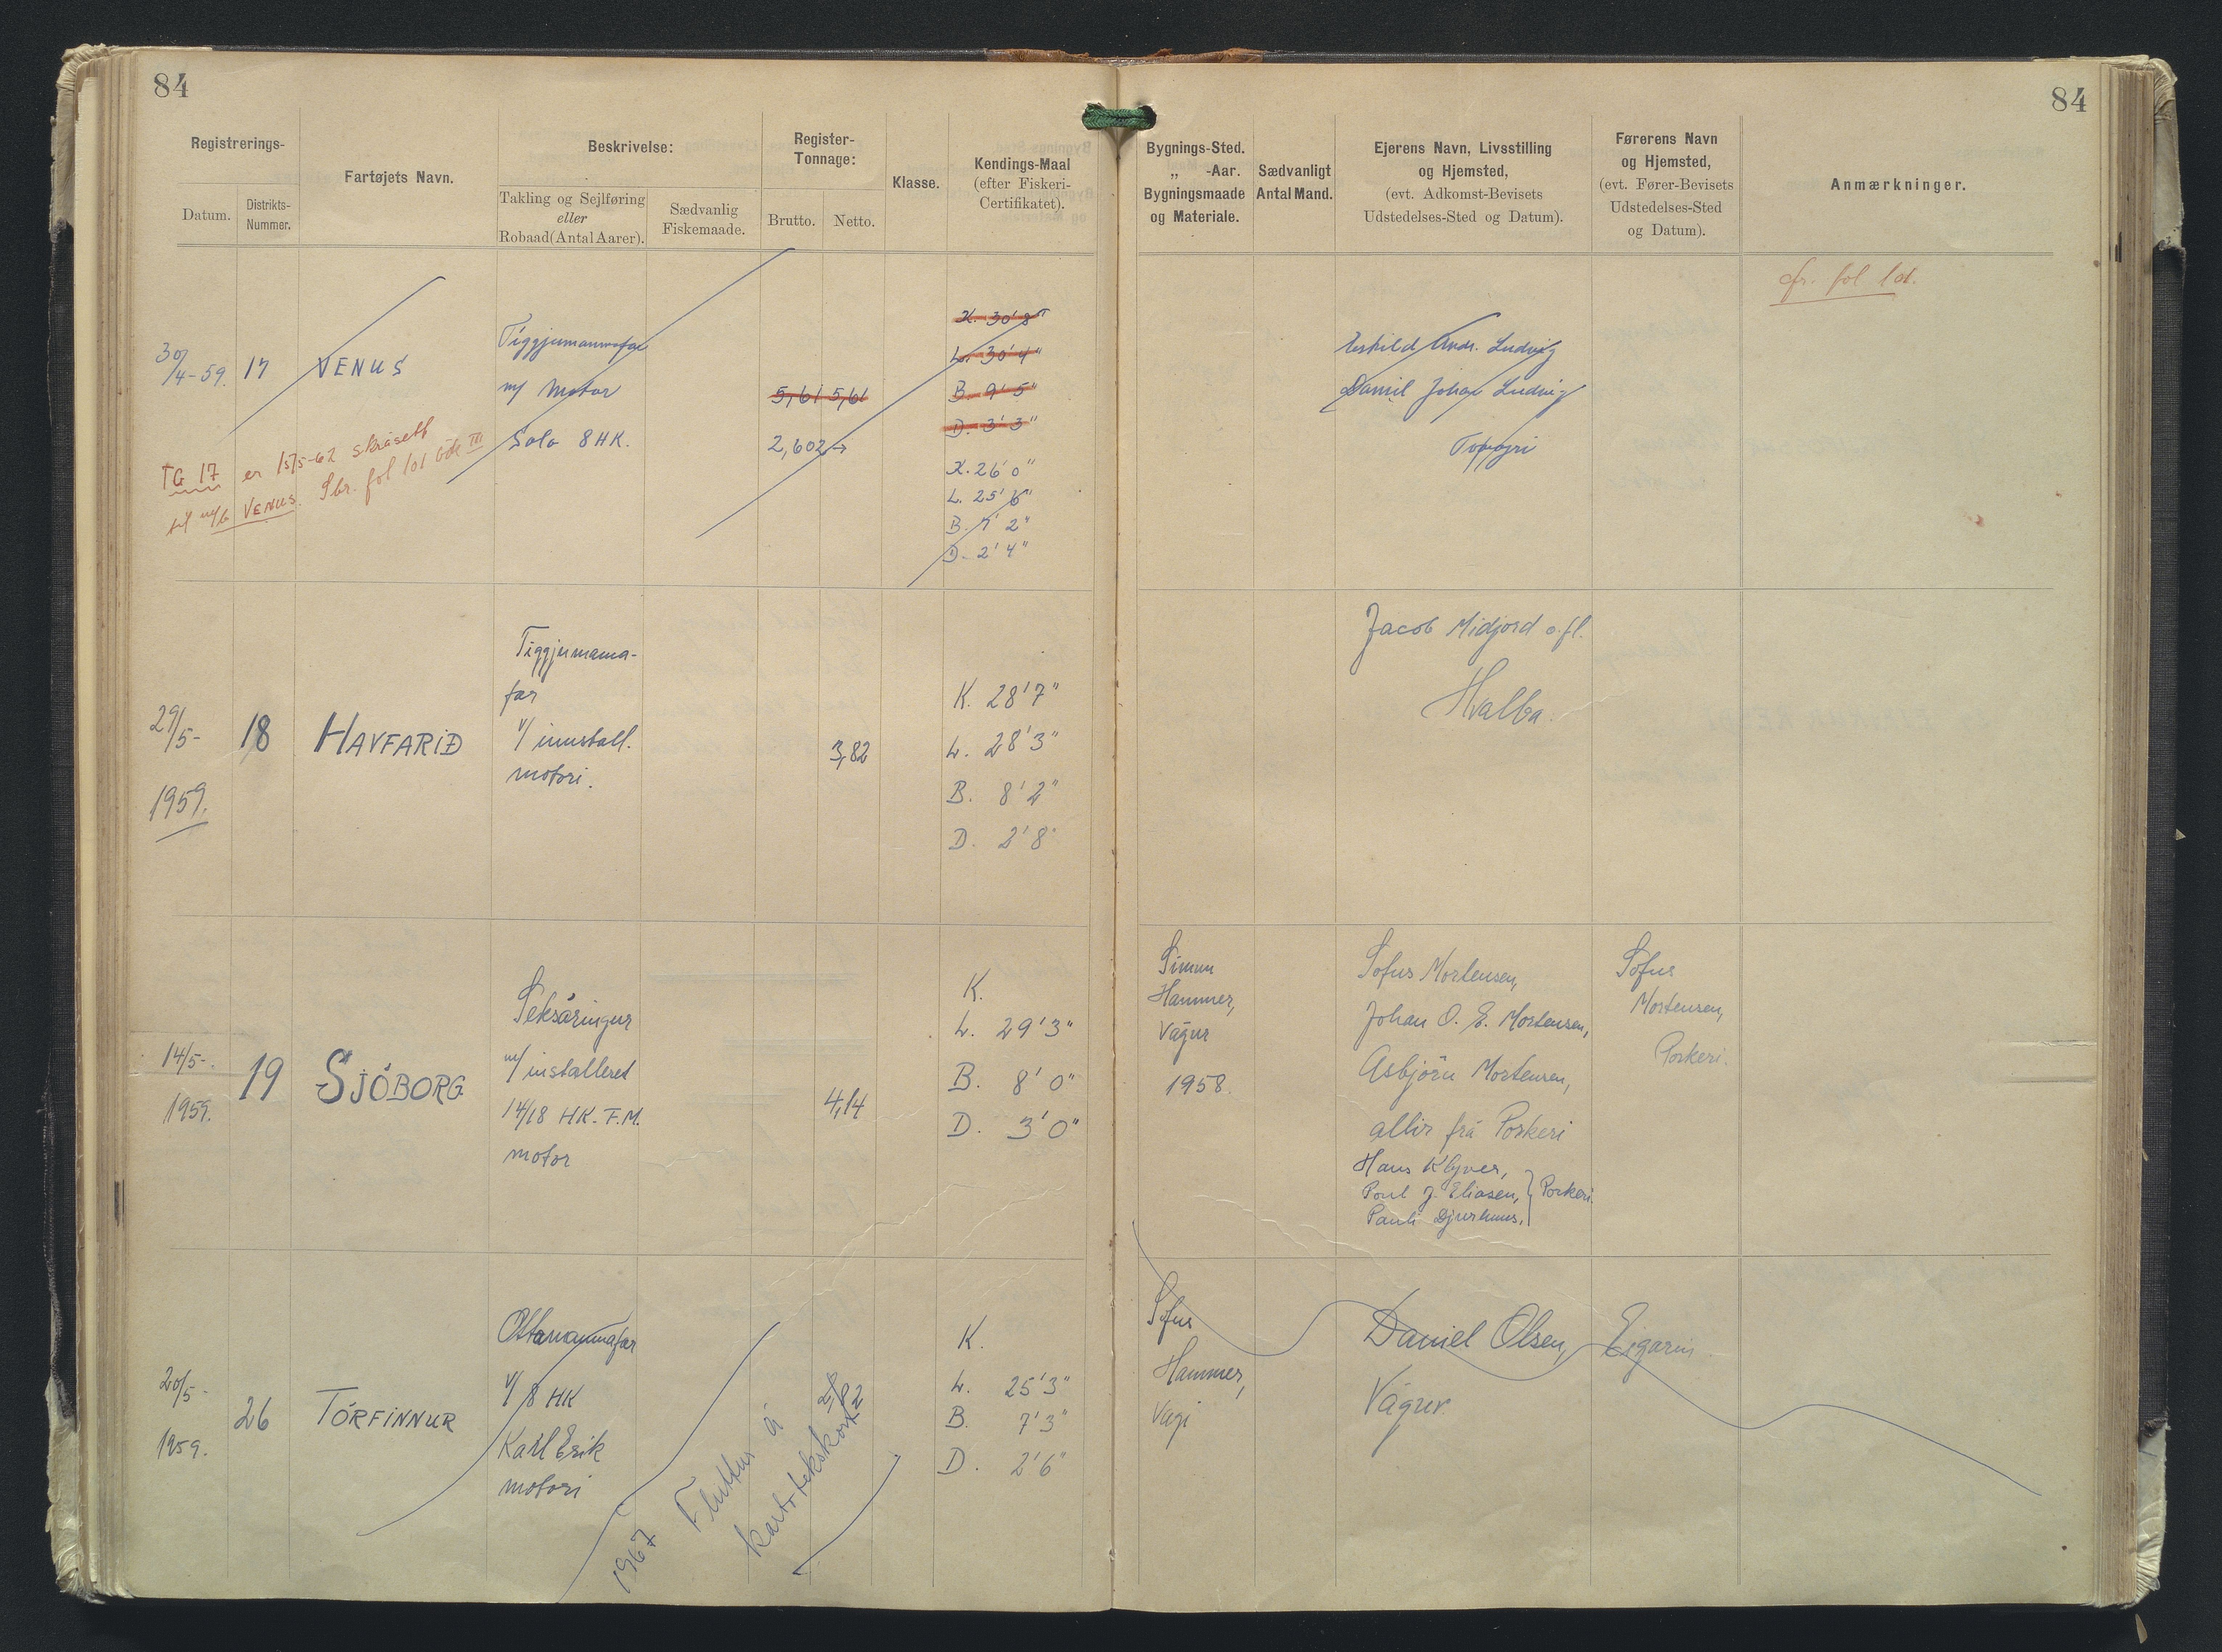 84
84
Registrerings-
Datum.
Distrikts-
Nummer.
Fartøjets Navn.
Beskrivelse:
Takling og Sejlføring
eller
Robaad (Antal Aarer).
Sædvanlig
Fiskemaade.
Register-
Tonnage:
Brutto.
Netto.
Klasse.
Kendings-Maal
(efter Fiskeri-
Certifikatet).
Bygnings-Sted.
„ -Aar.
Bygningsmaade
og Materiale.
Sædvanligt
Antal Mand.
Ejerens Navn, Livsstilling
og Hjemsted,
(evt. Adkomst-Bevisets
Udstedelses-Sted og Datum).
Førerens Navn
og Hjemsted,
(evt. Fører-Bevisets
Udstedelses-Sted
og Datum).
Anmærkninger.
cfr. fol 101.
30/4-59.
17
VENUS
Tiggjumannafar
m/ Motor
Solo 8 HK.
5,61 5,61
2,602
K. 30' 8"
L. 30' 4"
B. 9' 5"
D. 3' 3"
K. 26' 0"
L. 25' 6"
B. 7' 2"
D. 2' 4"
Eskild Andr. Ludvig
Daniel Johan Ludvig
TG 17 er 15/5-62 skrásett
til m/b VENUS. Sbr. fol 101 bók III
29/5-
1959.
18
HAVFARIÐ
Tiggjumanna-
far
v/ innstall.
motori.
3,82
K. 28' 7"
L. 28' 3"
B. 8' 2"
D. 2' 8"
Jacob Midjord o.fl.
Hvalba.
14/5-.
1959.
19
SJÓBORG
Seksáringur
m/ installeret
14/18 HK. F.M.
motor
4,14
K.
L. 29' 3"
B. 8' 0"
D. 3' 0"
Simun
Hammer,
Vágur
1958.
Sofus Mortensen,
Johan O. E. Mortensen,
Asbjörn Mortensen,
allir frá Porkeri
Hans Klyver,
Poul J. Eliasen, } Porkeri.
Pauli Djurhuus.
Sofus
Mortensen,
Porkeri.
20/5-
1959.
26
TÓRFINNUR
Ottamannafar
v/ 8 HK
Karl Erik
motori
K.
L. 25' 3"
B. 7' 3"
D. 2' 6"
Sofus
Hammer,
Vági
Daniel Olsen,
Vágur
Eigarin
1967 Fluttur á
kartotekskort